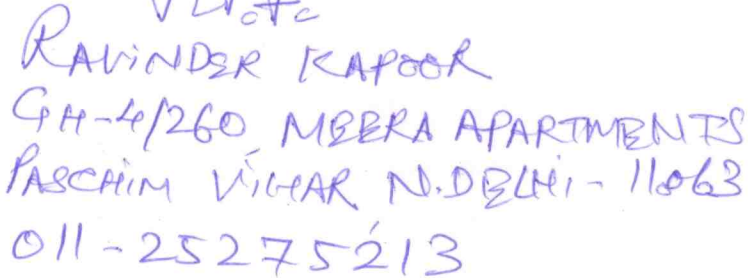 RAVINDER KAPOOR
GH-4/260 MEERA APARTMENTS
PASCHIM VIHAR N.DELHI- 110063
011-25275213